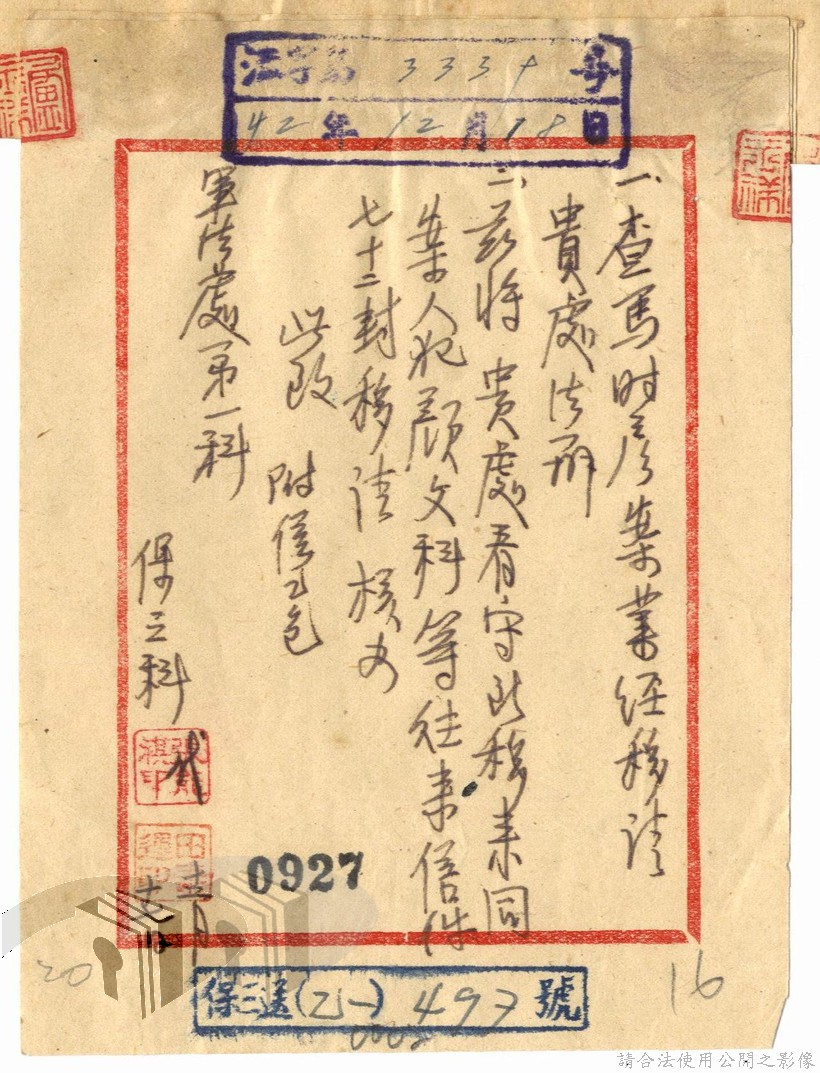 江字第3339号
42年12月18日
一、查馬時彥案業經移請
貴處法辦
二、茲將 貴處看守所移來同
案人犯顏文科等往來信件
七十二封移請 核办
此致 附信乙包
軍法處第一科
保三科
代
十二月
十七日
0927
保三送(乙一)497號
20
16
請合法使用公開之影像